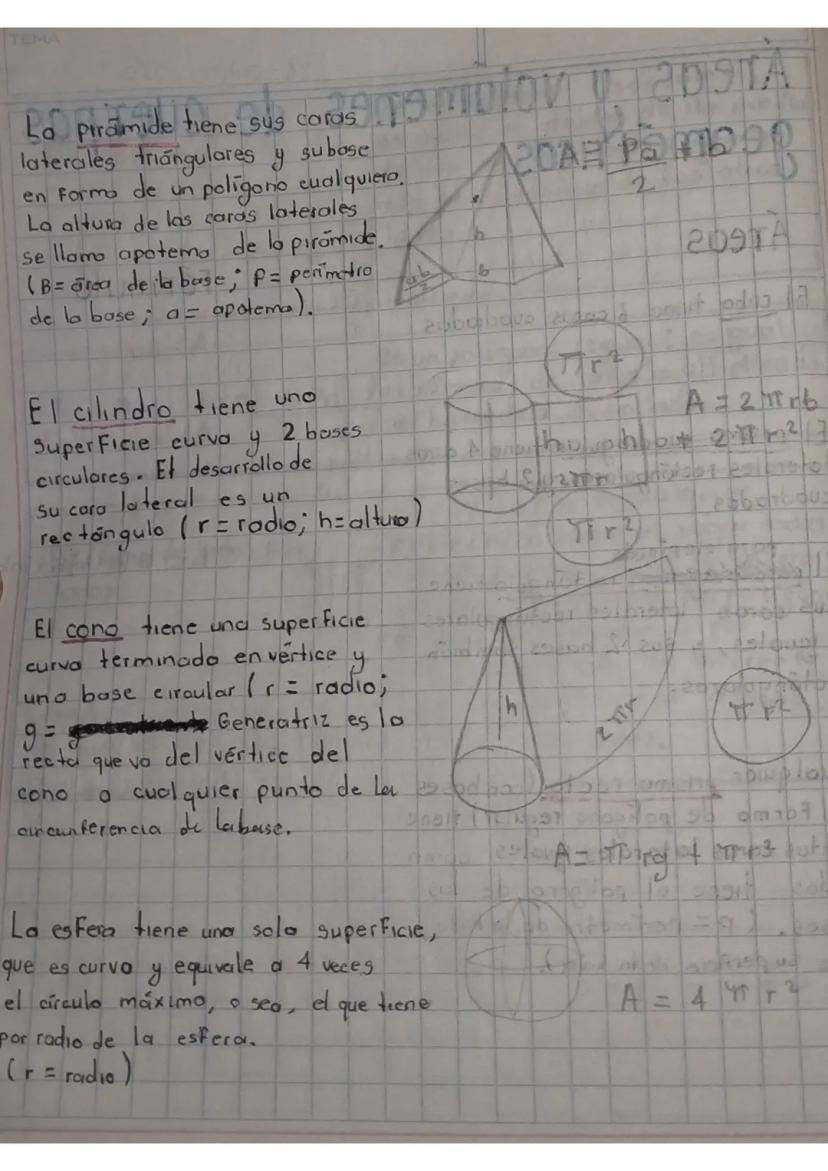 TEMA
La pirámide tiene sus caras
laterales triángulares y su base
en forma de un polígono cualquiera.
La altura de las caras laterales
se llama apotema de la pirámide.
(B= área de la base; P= perímetro
de la base; a= apotema).
A= Pa + b
2
h
El cilindro tiene una
superficie curva y 2 bases
circulares. El desarrollo de
su cara lateral es un
rectángulo (r= radio; h=altura)
πr²
A = 2πrh
+ 2πr²
πr²
El cono tiene una superficie
curva terminada en vértice y
una base circular (r= radio;
g= Generatriz es la
recta que va del vértice del
cono a cualquier punto de la
circunferencia de la base.
h
2πr
πr²
A= πrg + πr²
La esfera tiene una sola superficie,
que es curva y equivale a 4 veces
el círculo máximo, o sea, el que tiene
por radio de la esfera.
(r = radio)
A = 4πr²